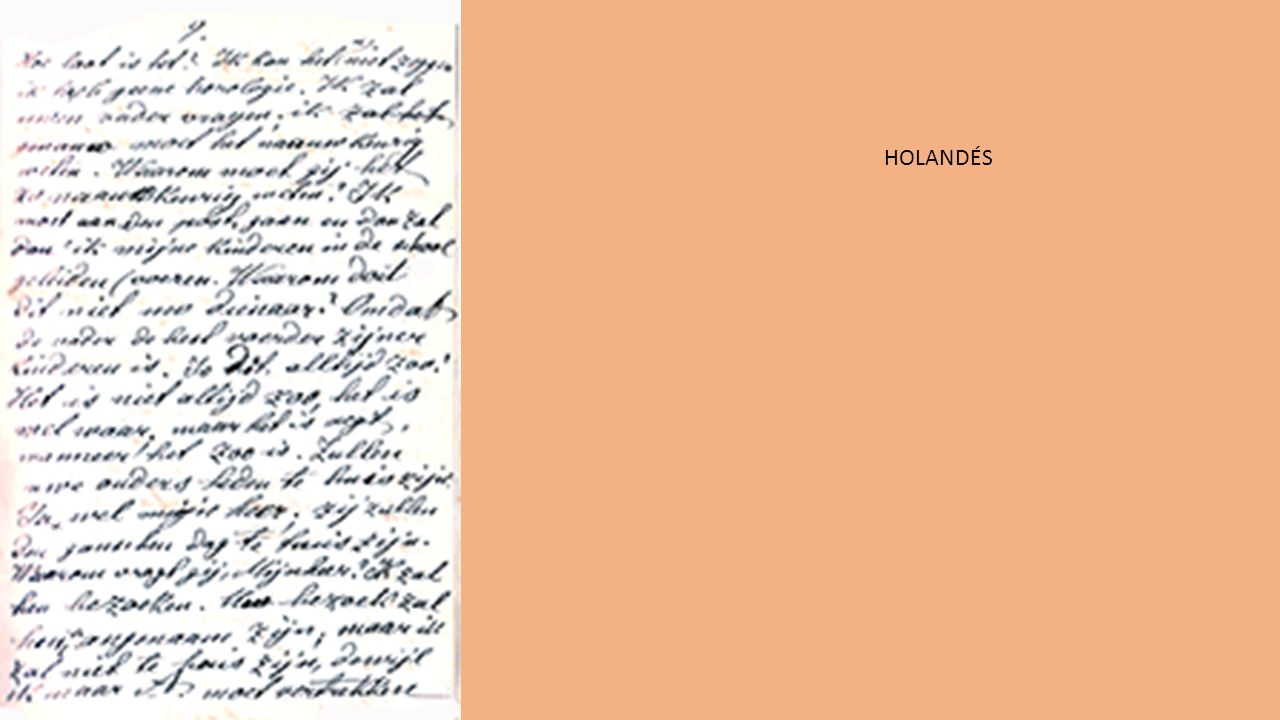 9.
Hoe laat is het? Ik kan het niet zeggen
ik heb geene horologie. Ik zal
mijn vader vragen, ik zal het
moet het nauwkeurig
weten. Waarom moet gij het
zo nauwkeurig weten? Ik
moet aan den post gaan en dan zal
dan ik mijne kinderen in de school
geleiden (voeren. Waarom doit
dit niet uw dienaar? Omdat
de vader de best voerder zijner
kinderen is. Is dit altijd zoo?
Het is niet altijd zoo, het is
wel waar, maar het is regt,
wanneer het zoo is. Zullen
uwe ouders heden te huis zijn
Ja, wel mijne heer, zij zullen
den ganschen dag te huis zijn.
Waarom vragt gij, Mijnheer? Ik zal
hen bezoeken. Uw bezoek zal
hen angenaam zijn, maar ik
zal niet te huis zijn, dewijl
ik naar moet vertrekken
HOLANDÉS